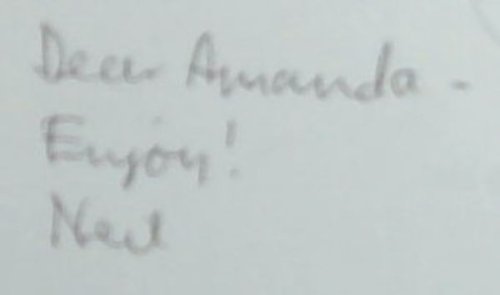 Dear Amanda -
Enjoy!
Neil